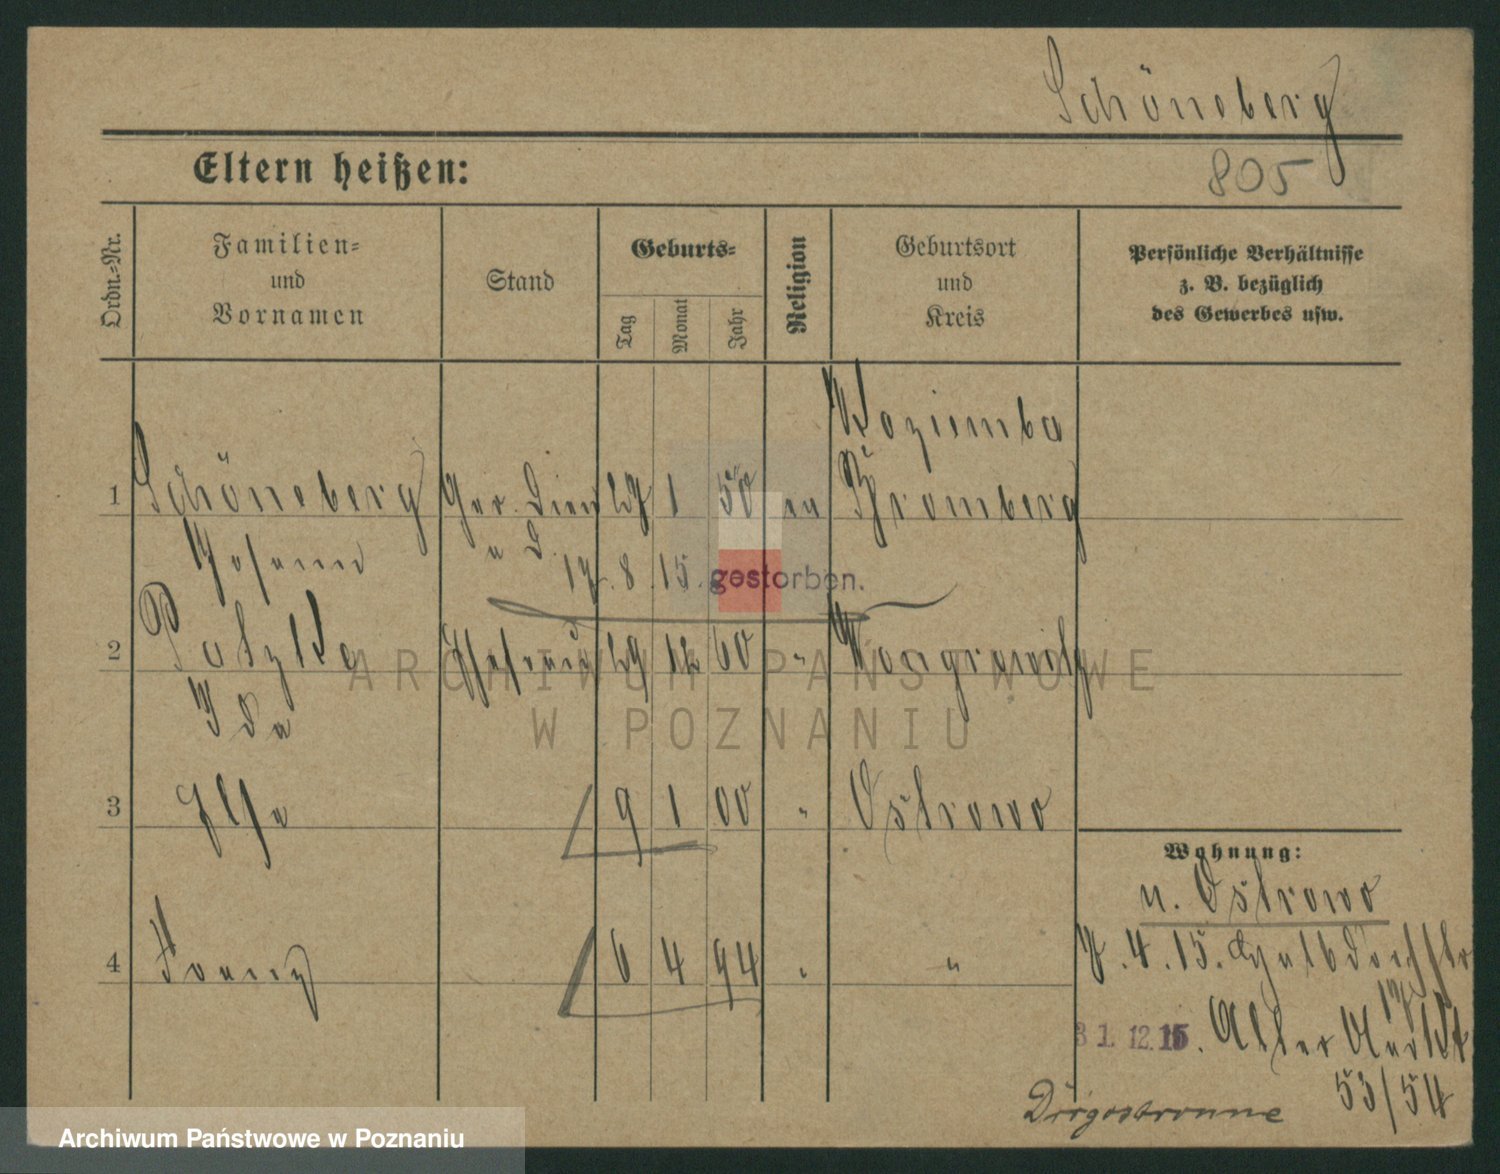 Schöneberg
Eltern heißen:
805
Ordn.=Nr.
Familien=
und
Vornamen
Stand
Geburts=
Tag
Monat
Jahr
Religion
Geburtsort
und
Kreis
Persönliche Verhältnisse
z. B. bezüglich
des Gewerbes usw.
Woziemba
1 Schöneberg Ger. Dien 27 1 50 ev Bromberg
Johann a D. 17.8.15. gestorben.
2 Patzke Ehefrau 29 12 60 " Wongrowitz
Ida
3 9 1 00 " Ostrowo
Ilse
Wohnung:
n. Ostrowo
4 Fanny 6 4 94 " "
7.4.15.
31. 12. 15. Alter Markt
53/54
ARCHIWUM PAŃSTWOWE
W POZNANIU
Archiwum Państwowe w Poznaniu